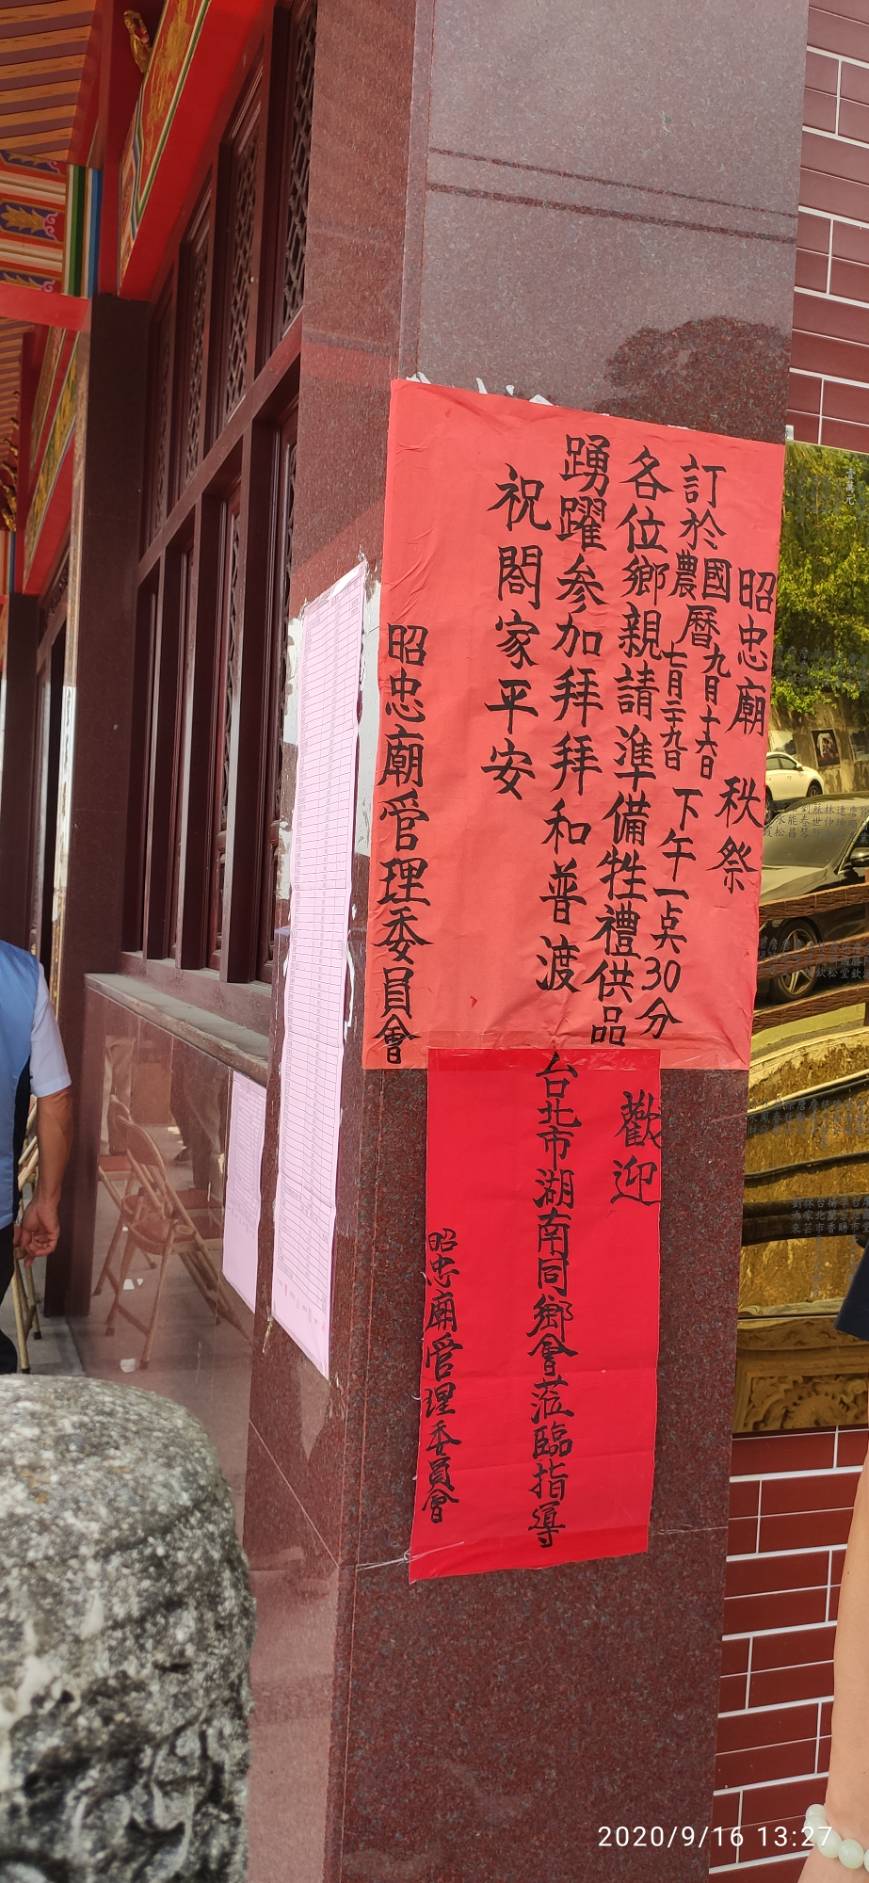 昭忠廟 秋祭
訂於國曆九月十六日
農曆七月二十九日
下午一点30分
各位鄉親請準備牲禮供品
踴躍参加拜拜和普渡
祝閤家平安
昭忠廟管理委員會
歡迎
台北市湖南同鄉會蒞臨指導
昭忠廟管理委員會
2020/9/16 13:27